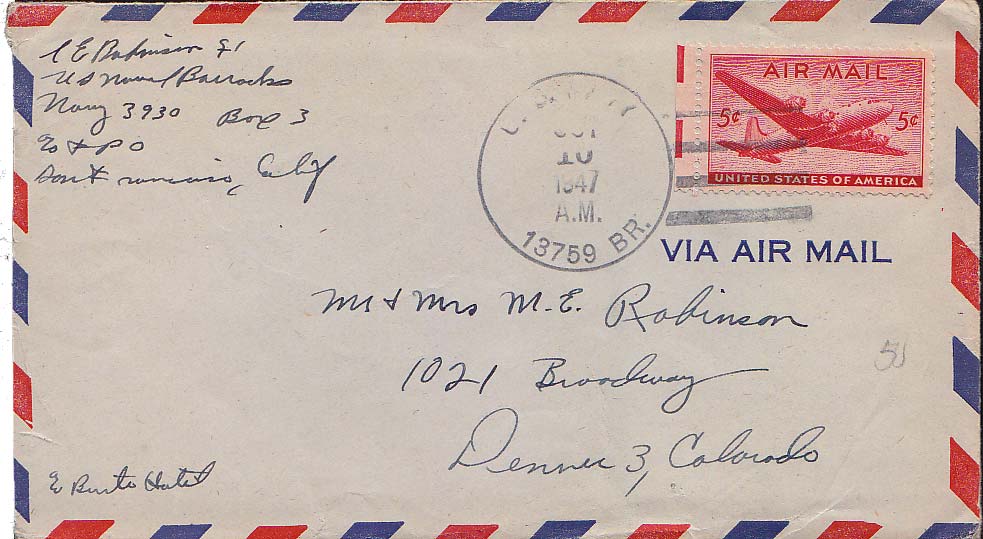 C E Robinson Y1
US Naval Barracks
Navy 3930 Box 3
℅ F P O
San Francisco, Calif
U.S. NAVY
OCT
10
1947
A.M.
13759 BR.
AIR MAIL
5¢ 5¢
UNITED STATES OF AMERICA
VIA AIR MAIL
Mr & Mrs M. E. Robinson
1021 Broadway
Denver 3, Colorado
Hotel